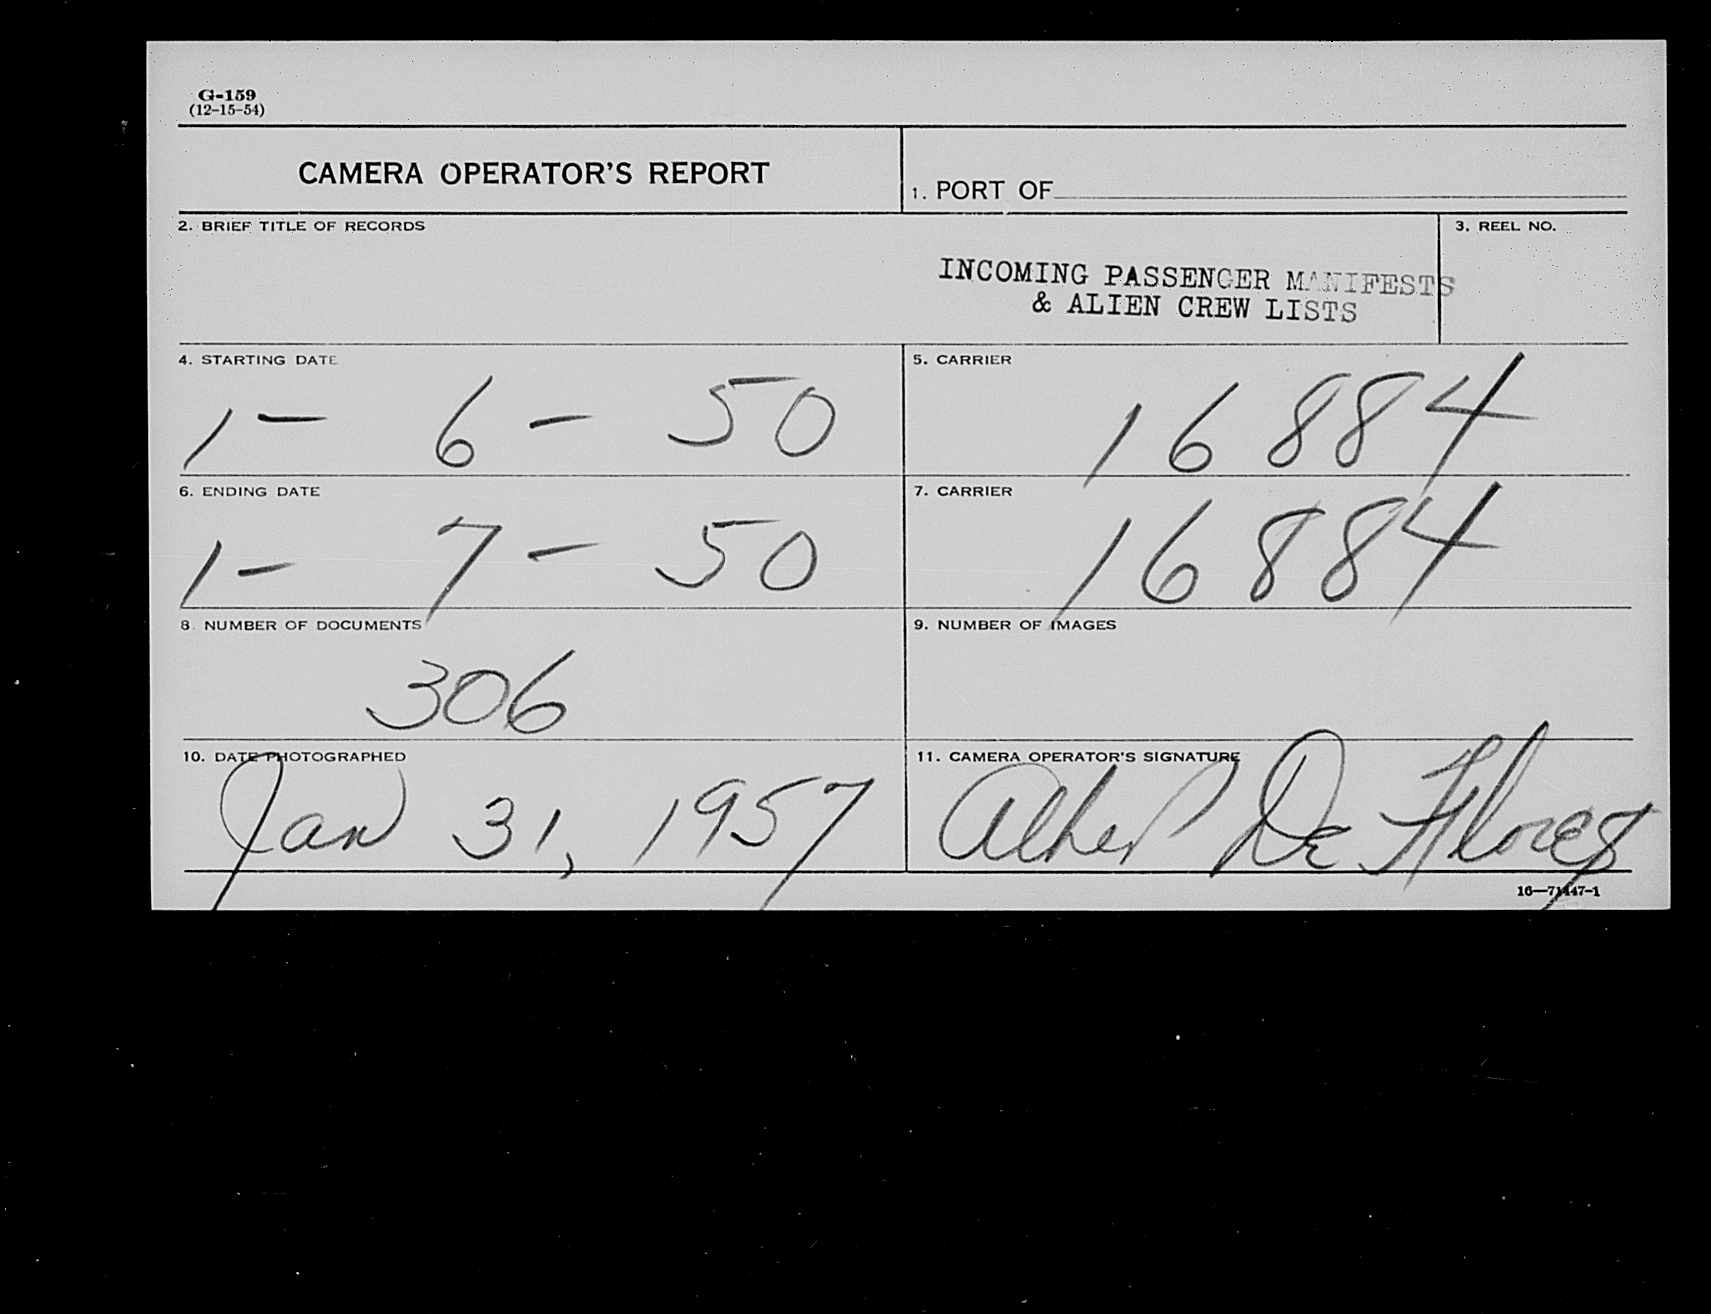 G-159
(12-15-54)
CAMERA OPERATOR'S REPORT
1. PORT OF
2. BRIEF TITLE OF RECORDS
3. REEL NO.
INCOMING PASSENGER MANIFESTS
& ALIEN CREW LISTS
4. STARTING DATE
1 - 6 - 50
5. CARRIER
16884
6. ENDING DATE
1 - 7 - 50
7. CARRIER
16884
8. NUMBER OF DOCUMENTS
306
9. NUMBER OF IMAGES
10. DATE PHOTOGRAPHED
Jan 31, 1957
11. CAMERA OPERATOR'S SIGNATURE
De Flores
16—71447-1